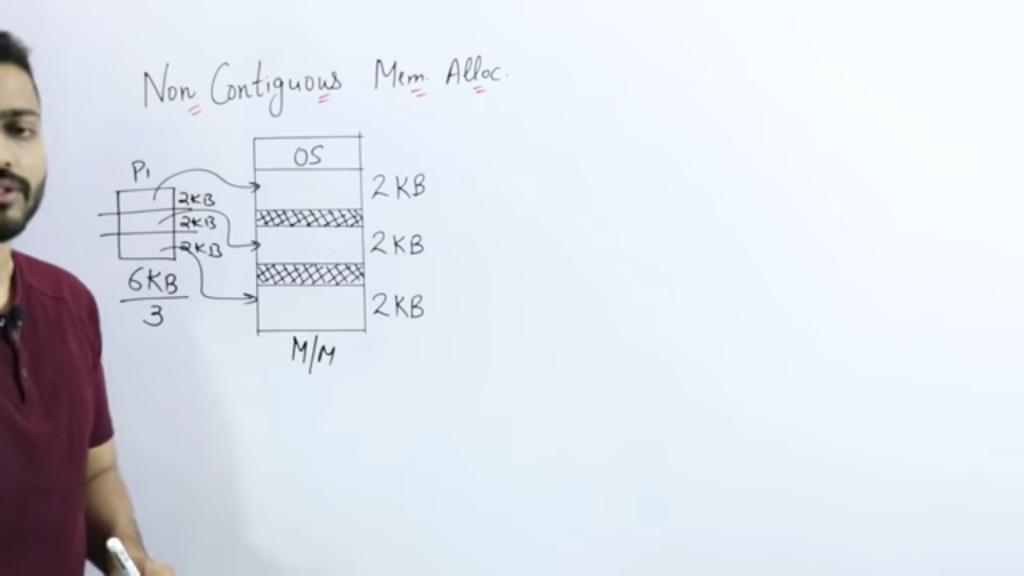 Non Contiguous Mem. Alloc.
P1
OS
2KB
2KB
2KB
6KB
3
2KB
2KB
2KB
M/M